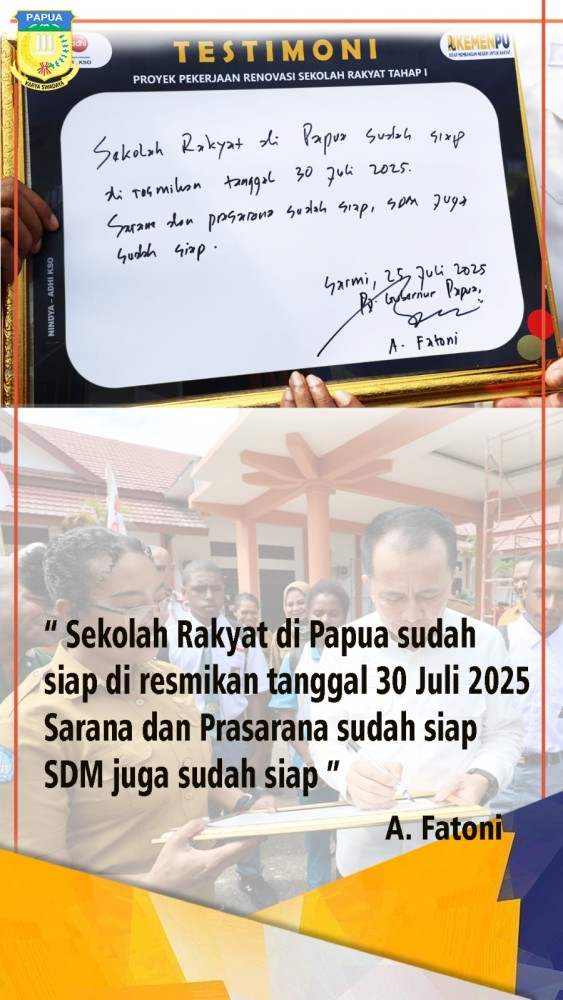 PAPUA
KARYA SWADAYA
KSO
KEMENPU
TESTIMONI
PROYEK PEKERJAAN RENOVASI SEKOLAH RAKYAT TAHAP I
Sekolah Rakyat di Papua sudah siap
di resmikan tanggal 30 Juli 2025.
Sarana dan prasarana sudah siap, SDM juga
sudah siap.
Sarmi, 25 Juli 2025
Pj. Gubernur Papua,
A. Fatoni
NINDYA - ADHI KSO
“ Sekolah Rakyat di Papua sudah
siap di resmikan tanggal 30 Juli 2025
Sarana dan Prasarana sudah siap
SDM juga sudah siap ”
A. Fatoni